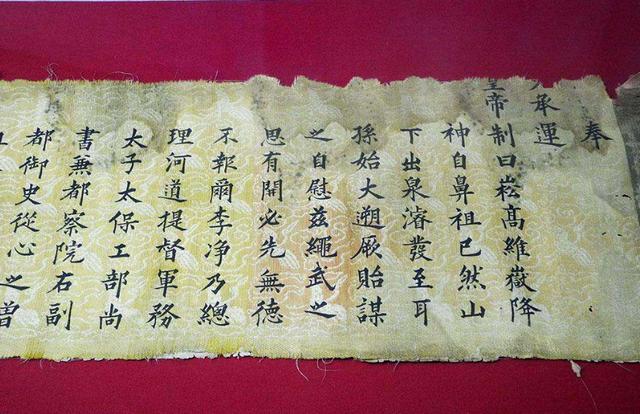 奉
天承運
皇帝制曰崧高維嶽降
神自鼻祖已然山
下出泉濬發至耳
孫始大遡厥貽謀
之自慰茲繩武之
思有開必先無德
不報爾李净乃總
理河道提督軍務
太子太保工部尚
書兼都察院右副
都御史從心之曾